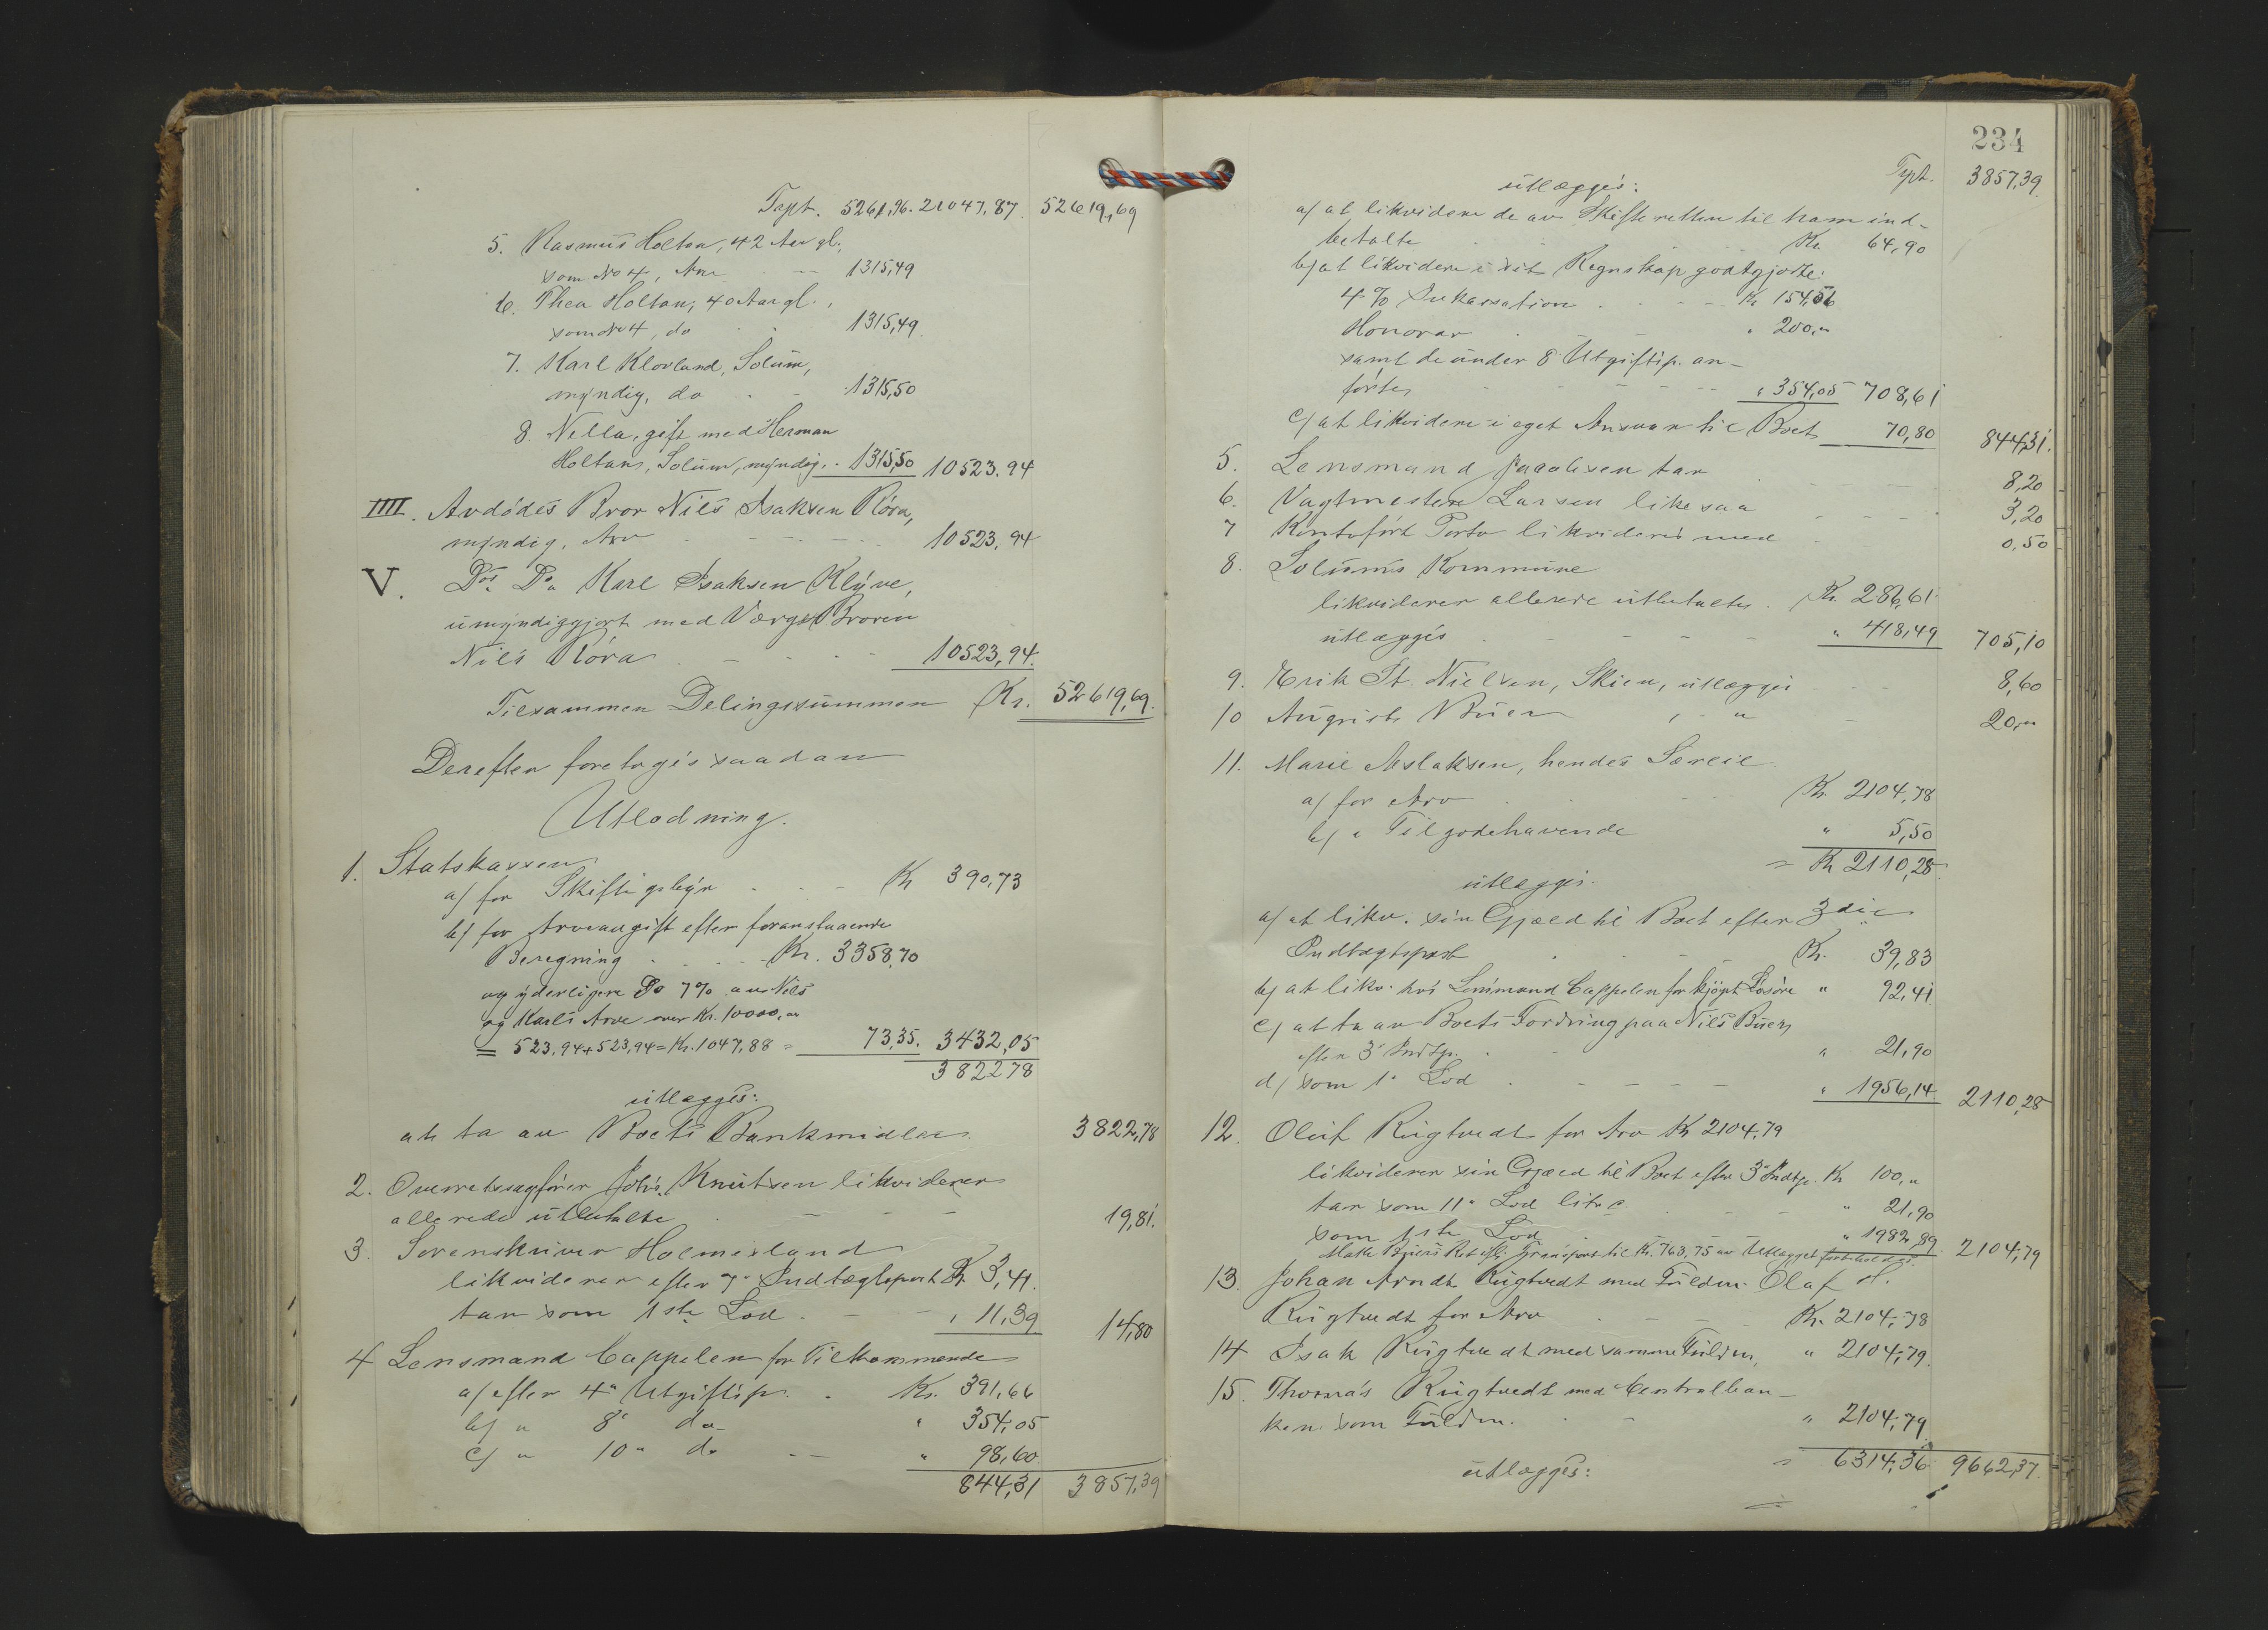 Trspt. 5261,96. 21047,87 52619,69
5. Rasmus Holtan, 42 Aar gl.,
som No 4, Arv 1315,49
6. Thea Holtan, 40 Aar gl.,
som No 4, do 1315,49
7. Karl Klovland, Solum,
myndig, do 1315,50
8. Nella, gift med Herman
Holtans, Solum, myndig. 1315,50 10523.94
IIII. Avdødes Bror Nils Isaksen Róra,
myndig, Arv 10523,94
V. Ds. Do. Karl Isaksen Klyve,
umyndiggjort med Verge Broren
Nils Róra 10523,94.
Tilsammen Delingssummen Kr. 52619,69.
Derefter foretoges saadan
Utlodning.
1. Statskassen
a/ for Skiftegebyr Kr 390,73
b/ for Arveavgift efter foranstaaende
Beregning Kr. 3358,70
og yderligere Do 7% av Nils
og Karls Arve over Kr. 10000,00
= 523,94 + 523,94 = Kr. 1047,88 = 73,35. 3432,05
382278
utlægges:
at ta av Boets Bankmidler 3822,78
2. Overretssagfører Johs. Knutsen likviderer
allerede utbetalte 19,81.
3. Sorenskriver Holmesland
likviderer efter 7' Indtægtspost Kr. 3,41.
tar som 1ste Lod " 11,39 14,80
4 Lensmand Cappelen for Tilkommende
a/ efter 4" Utgiftsp. Kr. 391,66
b/ " 8" do " 354,05
c/ " 10" do " 98,60
844,31 3857,39
234
Trspt. 3857,39
utlægges:
a/ at likvidere de av Skifteretten til ham ind-
betalte Kr. 64,90
b/ at likvidere i sit Regnskap godtgjorte:
4% Inkassation Kr 154,56
Honorar " 200,"
samt de under 8' Utgiftsp. an-
førte " 354,05 708,61
c/ at likvidere i eget Ansvar til Boet 70,80 844,31.
5. Lensmand Jacobsen tar 8,20
6. Vagtmester Larsen likesaa 3,20
7 Kontoført Porto likvideres med 0,50
8. Solums Kommune
likviderer allerede utbetalte Kr. 286,61
utlægges " 418,49 705,10
9. Erik St. Nielsen, Skien, utlægges 8,60
10 August Buer " 20,"
11. Marie Aslaksen, hendes Særeie
a/ for Arv Kr. 2104,78
b/ " Tilgodehavende " 5,50
= Kr 2110,28
utlægges.
a/ at likv. sin Gjæld til Boet efter 3die
Indtægtspost Kr. 39,83
b/ at likv. hos Lensmand Cappelen for kjøpt Løsøre " 92,41
c/ at ta av Boets Fordring paa Nils Buer
efter 3' Indtp. " 21,90
d/ som 1" Lod " 1956,14 2110,28
12. Oluf Rugtvedt for Arv Kr 2104,79
likviderer sin Gjæld til Boet efter 3" Indtp. Kr 100,"
tar som 11" Lod litr c " 21,90
som 1ste Lod " 1982,89. 2104,79
Buers Ret efter Transport til Kr. 763,75 av Utlægget forbeholdes.
13. Johan Arndt Rugtvedt med Fuldm. Olaf A.
Rugtvedt for Arv Kr. 2104,78
14 Isak Rugtvedt med samme Fuldm, " 2104,79.
15. Thomas Rugtvedt med Centralban-
ken som Fuldm. " 2104,79
= 6314,36 9662,37.
utlægges: